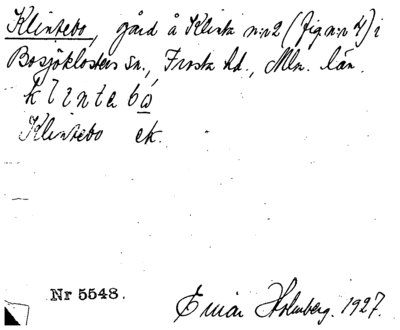 Klintebo, gård å Klinta n:r 2 (fig n:r 4) i
Bosjöklosters sn., Frosta hd., Mlm. län.
klintabå
Klintebo ek.
Nr 5548.
Einar Holmberg. 1927.